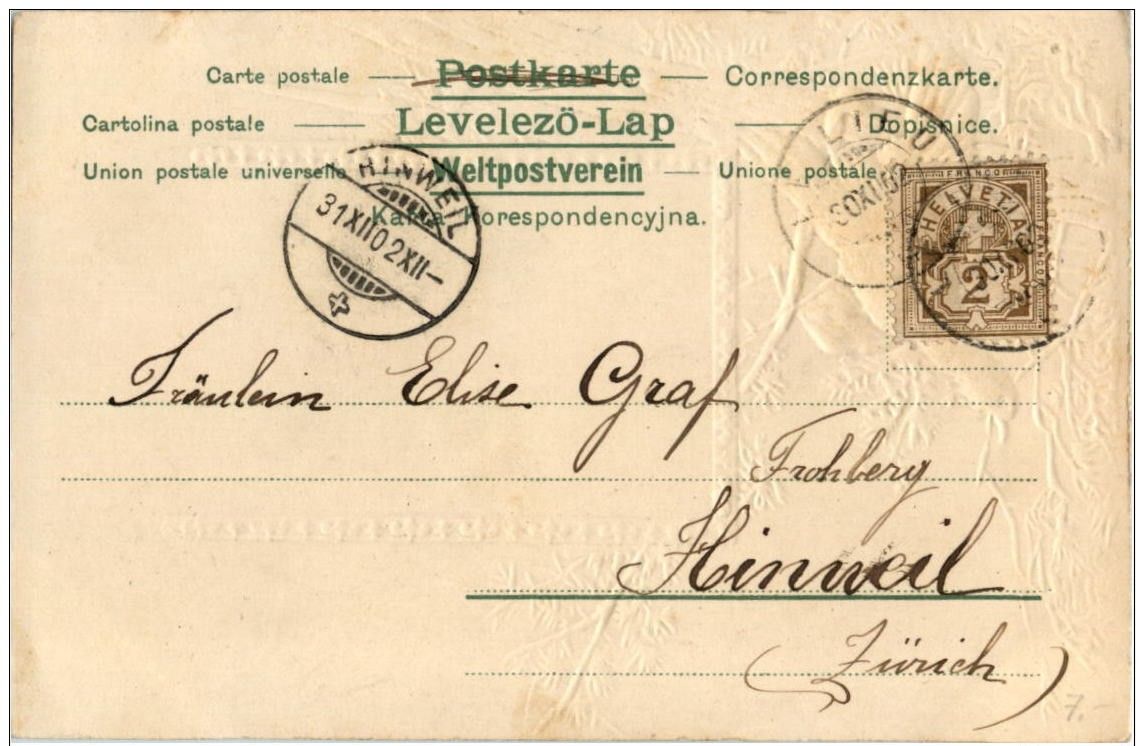 Carte postale — Postkarte — Correspondenzkarte.
Cartolina postale — Levelezö-Lap — Dopisnice.
Union postale universelle Weltpostverein — Unione postale
Karta Korespondencyjna.
HINWEIL
31 XII 02 XII–
FRANCO
HELVETIA
FRANCO
2
Fräulein Elise Graf
Frohberg
Hinweil
(Zürich)
7.-